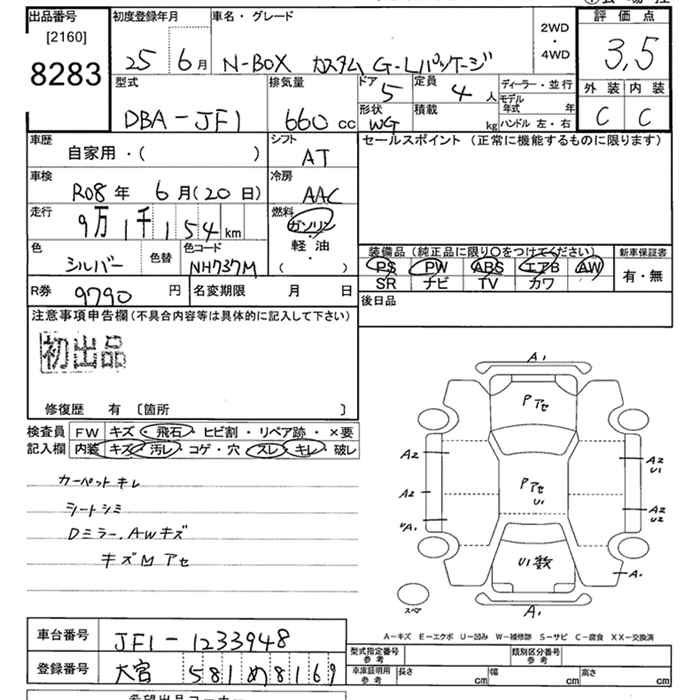 出品番号
[2160]
8283
初度登録年月
25 6月
車名・グレード
N-BOX カスタム G-Lパッケージ
2WD
・
4WD
評価点
3,5
外装 内装
C C
型式
DBA-JF1
排気量
660 cc
ドア 5
定員 4 人
形状 WG
積載 kg
ディーラー・並行
モデル年式 年
ハンドル 左・右
車歴
自家用・( )
シフト
AT
セールスポイント (正常に機能するものに限ります)
車検
R08年 6月(20日)
冷房
AAC
走行
9万1千154km
燃料
ガソリン
軽油
( )
色
シルバー
色替
色コード
NH737M
装備品 (純正品に限り○をつけてください)
PS PW ABS エアB AW
SR ナビ TV カワ
新車保証書
有・無
R券 9790円
名変期限 月 日
後日品
注意事項申告欄(不具合内容等は具体的に記入して下さい)
初出品
修復歴 有 〔箇所 〕
検査員記入欄
FW キズ・飛石・ヒビ割・リペア跡・×要
内装 キズ・汚レ・コゲ・穴 スレ・キレ・破レ
カーペットキレ
シートシミ
Dミラー、AWキズ
キズM アセ
A1
Pアセ
A2
A2
U1
Pアセ
U1
A2
A2
U2
U1数
A1
スペア
A1
A-キズ E-エクボ U-凹み W-補修跡 S-サビ C-腐食 XX-交換済
車台番号 JF1-1233948
登録番号 大宮 581 め 8169
型式指定番号
参考
類別区分番号
参考
車庫証明用
参考
長さ cm
幅 cm
高さ cm